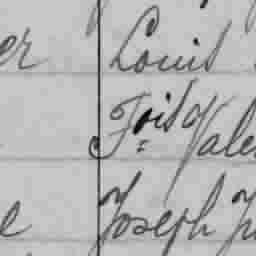 er Louis
Fois Vale
e Joseph